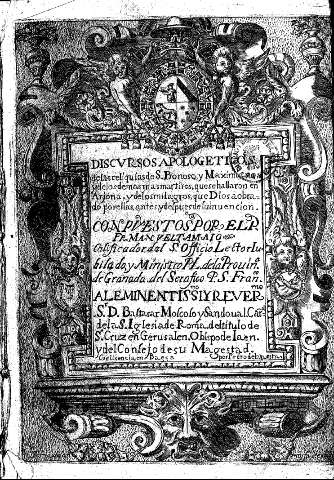 DISCVRSOS APOLOGETICOS,
de las reliquias de S. Bonoso, y Maximiano
y de los demas mas martires, que se hallaron en
Arjona, y de los milagros, que Dios a obra-
do por ellas, antes y despues de su inuencion.
CONPVESTOS POR EL P.
Fr. MANVEL TAMAIO
Calificador del Sto Officio Lector Iu
bilado, y Ministro Pl. de la Prouin.
de Granada del Serafico P. S. Fran.
AL EMINENTISS. Y REVER
S. D. Baltasar Moscoso y Sandoual Car
de la S. Iglesia de Roma del titulo de
S. Cruz en Gerusalen, Obispo de Iaen,
y del Consejo de su Magestad.
Con licencia en Baeça